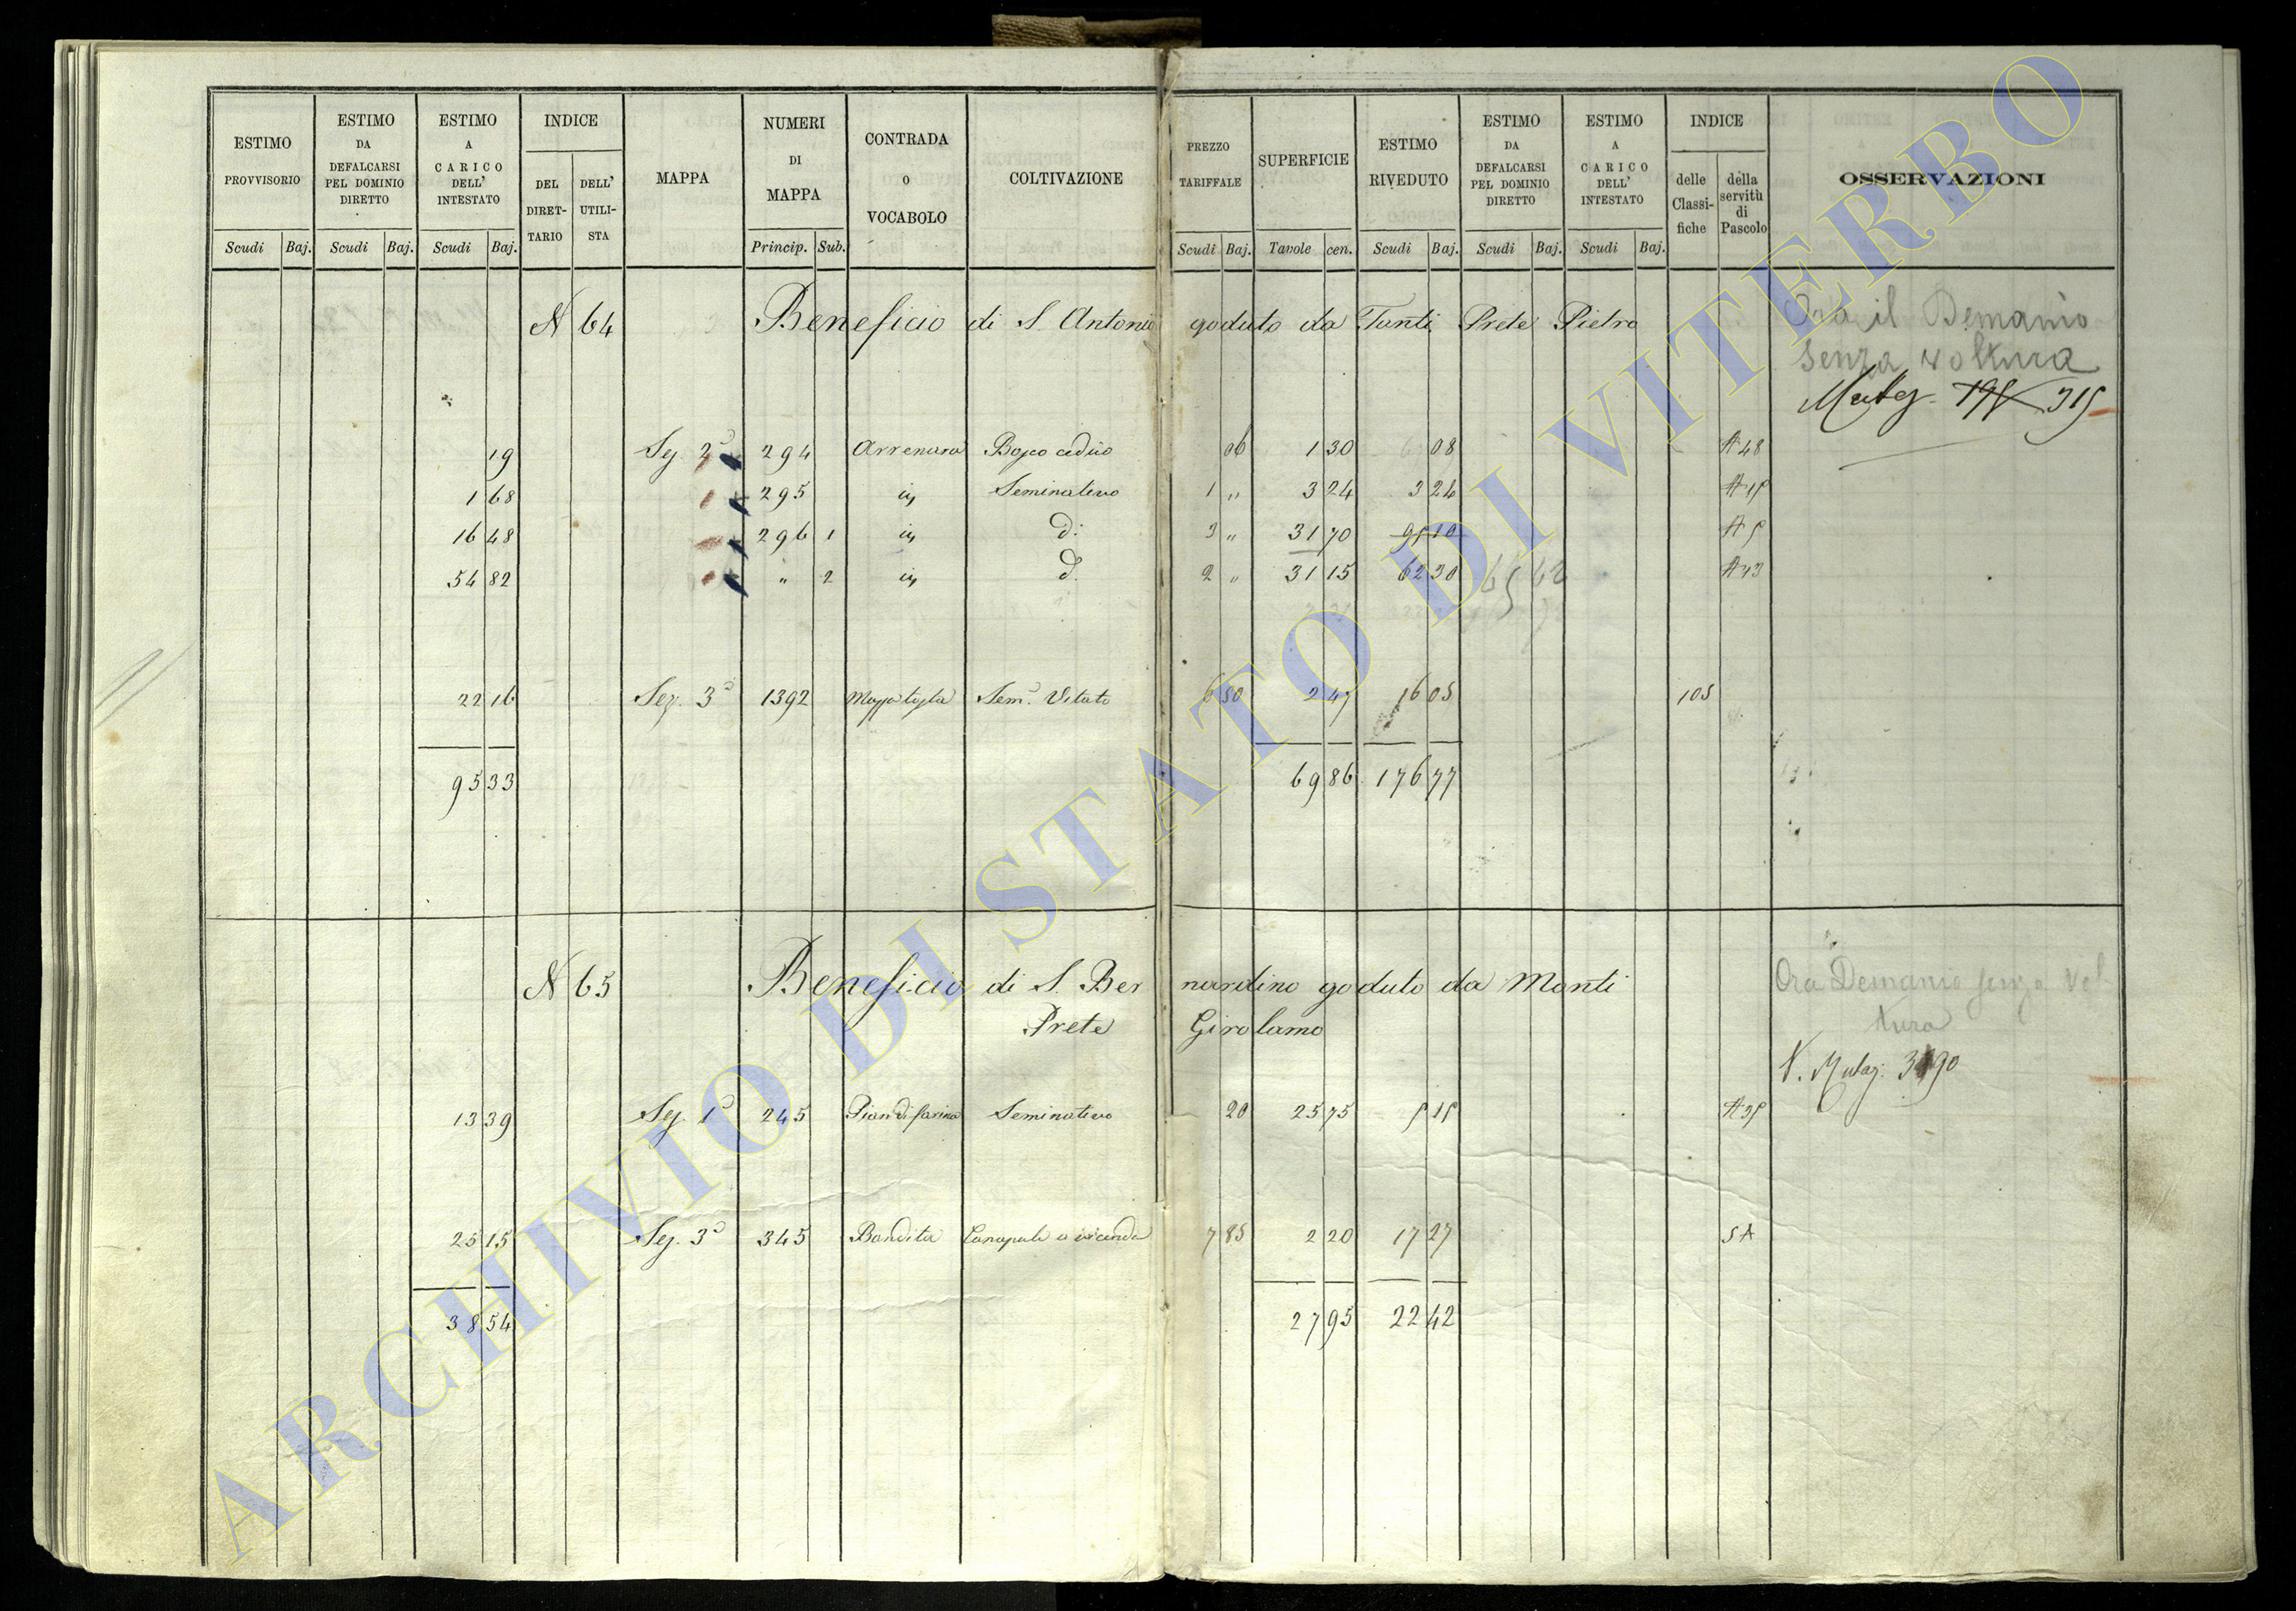 ESTIMO PROVVISORIO Scudi Baj.
ESTIMO DA DEFALCARSI PEL DOMINIO DIRETTO Scudi Baj.
ESTIMO A CARICO DELL' INTESTATO Scudi Baj.
INDICE DEL DIRET- TARIO DELL' UTILI- STA
MAPPA
NUMERI DI MAPPA Princip. Sub.
CONTRADA O VOCABOLO
COLTIVAZIONE
PREZZO TARIFFALE Scudi Baj.
SUPERFICIE Tavole cen.
ESTIMO RIVEDUTO Scudi Baj.
ESTIMO DA DEFALCARSI PEL DOMINIO DIRETTO Scudi Baj.
ESTIMO A CARICO DELL' INTESTATO Scudi Baj.
INDICE delle Classi- fiche della servitù di Pascolo
OSSERVAZIONI
N 64 Beneficio di S. Antonio goduto da Tanti Prete Pietro
Ora il Demanio
senza voltura
315
19 Sez. 2ª 294 Arrenara Bosco ceduo 06 1 30 08 A 48
1 68 295 id Seminativo 1 " 3 24 3 24
16 48 296 1 id d: 3 " 31 70 95 10 A 5
54 82 " 2 id d. 2 " 31 15 62 30 65 62 A 43
22 16 Sez. 3ª 1392 Sem.º Vitato 6 50 2 47 16 05 105
95 33 69 86 176 77
N 65 Beneficio di S. Ber nardino goduto da Monti
Prete Girolamo
Ora Demanio senza vol-
tura
V. Mutaz:
13 39 Sez. 1ª 245 Pian di farina Seminativo 20 25 75 5 15 A 35
25 15 Sez. 3ª 345 Bandita Canapule a vicenda 7 85 2 20 17 27 5 A
38 54 27 95 22 42
ARCHIVIO DI STATO DI VITERBO